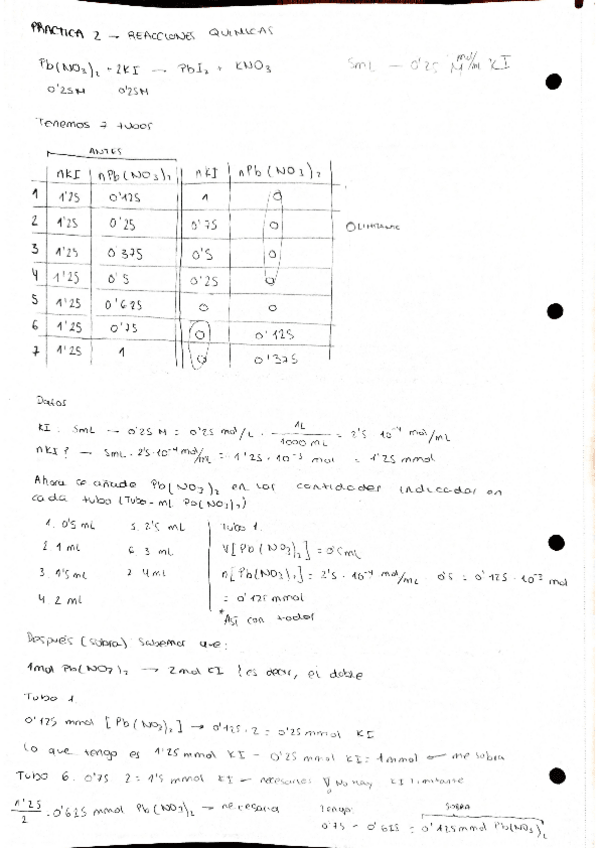 PRACTICA 2 → REACCIONES QUIMICAS
Pb(NO3)2 + 2KI → PbI2 + KNO3
5mL → 0'25 M mol/mL KI
0'25M 0'25M
Tenemos 7 tubos
ANTES
nKI nPb(NO3)2 nKI nPb(NO3)2
1 1'25 0'125 1 0
2 1'25 0'25 0'75 0
O LIMITANTE
3 1'25 0'375 0'5 0
4 1'25 0'5 0'25 0
5 1'25 0'625 0 0
6 1'25 0'75 0 0'125
7 1'25 1 0 0'375
Datos
KI: 5mL → 0'25 M = 0'25 mol/L · 1L/1000 mL = 2'5 · 10⁻⁴ mol/mL
nKI? → 5mL · 2'5·10⁻⁴ mol/mL = 1'25 · 10⁻³ mol = 1'25 mmol
Ahora se añade Pb(NO3)2 en las cantidades indicadas en
cada tubo (Tubo - mL Pb(NO3)2)
1. 0'5 mL 5. 2'5 mL
2. 1 mL 6. 3 mL
3. 1'5 mL 7. 4 mL
4. 2 mL
Tubo 1.
V[Pb(NO3)2] = 0'5mL
n[Pb(NO3)2] = 2'5 · 10⁻⁴ mol/mL · 0'5 = 0'125 · 10⁻³ mol
= 0'125 mmol
*Así con todos
Después (sobra) sabemos que:
1mol Pb(NO3)2 → 2mol KI es decir, el doble
Tubo 1.
0'125 mmol [Pb(NO3)2] → 0'125 · 2 = 0'25 mmol KI
Lo que tengo es 1'25 mmol KI - 0'25 mmol KI = 1 mmol → me sobra
Tubo 6. 0'75 · 2 = 1'5 mmol KI → necesarios No hay KI limitante
1'25/2 = 0'625 mmol Pb(NO3)2 → necesaria
Tengo: SOBRA
0'75 - 0'625 = 0'125 mmol Pb(NO3)2